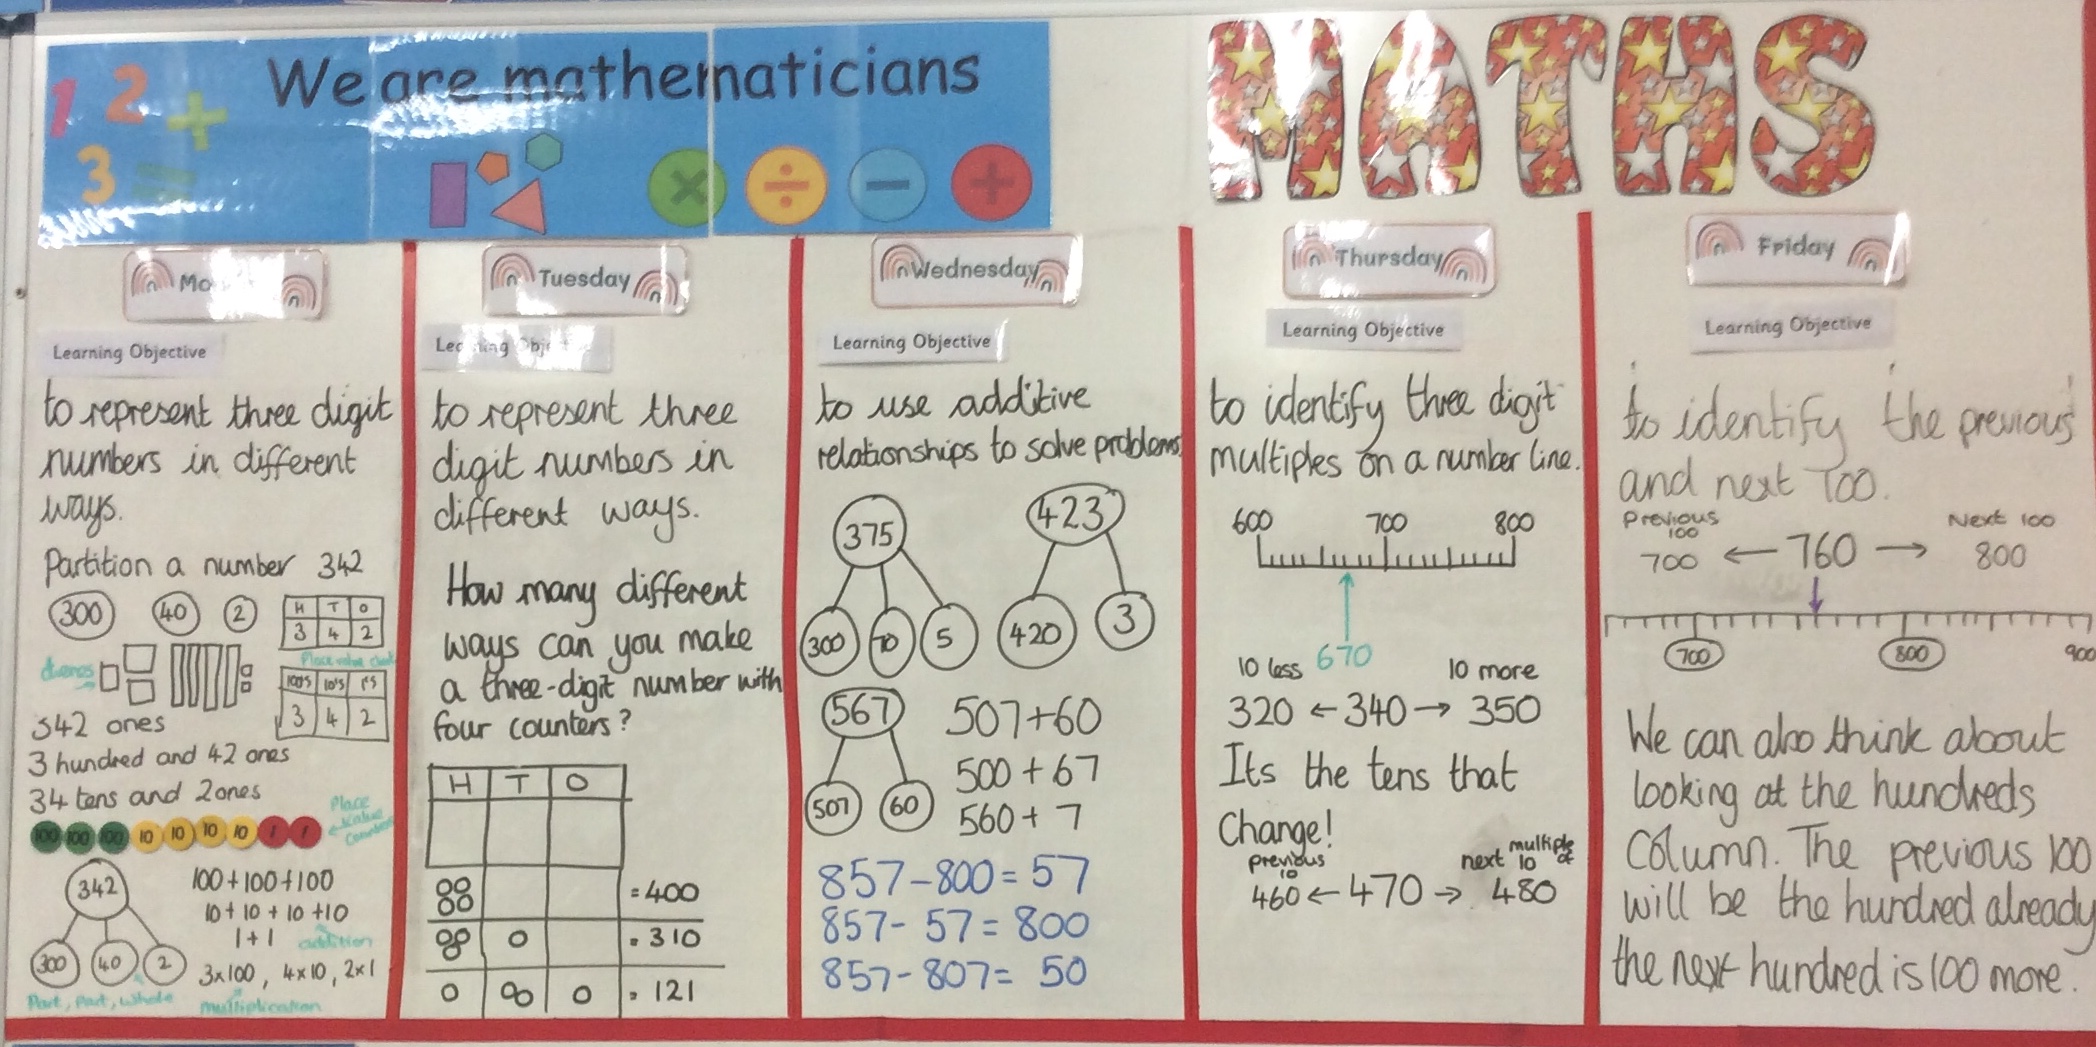 1 2 +
3 =
We are mathematicians
× ÷ − +
MATHS
Learning Objective
to represent three digit
numbers in different
ways.
Partition a number 342
300 40 2
H T O
3 4 2
Place value chart
dienes
100's 10's 1's
3 4 2
342 ones
3 hundred and 42 ones
34 tens and 2 ones
100 100 100 10 10 10 10 1 1
Place
value
counters
342
300 40 2
Part, Part, whole
100+100+100
10+10+10+10
1+1
addition
3×100, 4×10, 2×1
multiplication
Tuesday
to represent three
digit numbers in
different ways.
How many different
ways can you make
a three-digit number with
four counters?
H T O
=400
=310
=121
Wednesday
Learning Objective
to use additive
relationships to solve problems.
375
300 70 5
423
420 3
567
507 60
507+60
500+67
560+7
857-800=57
857-57=800
857-807=50
Thursday
Learning Objective
to identify three digit
multiples on a number line.
600 700 800
670
10 less 10 more
320 ← 340 → 350
Its the tens that
Change!
previous
10
next multiple of
10
460 ← 470 → 480
Friday
Learning Objective
to identify the previous
and next 100.
Previous
100
Next 100
700 ← 760 → 800
700 800 900
We can also think about
looking at the hundreds
column. The previous 100
will be the hundred already
the next hundred is 100 more.